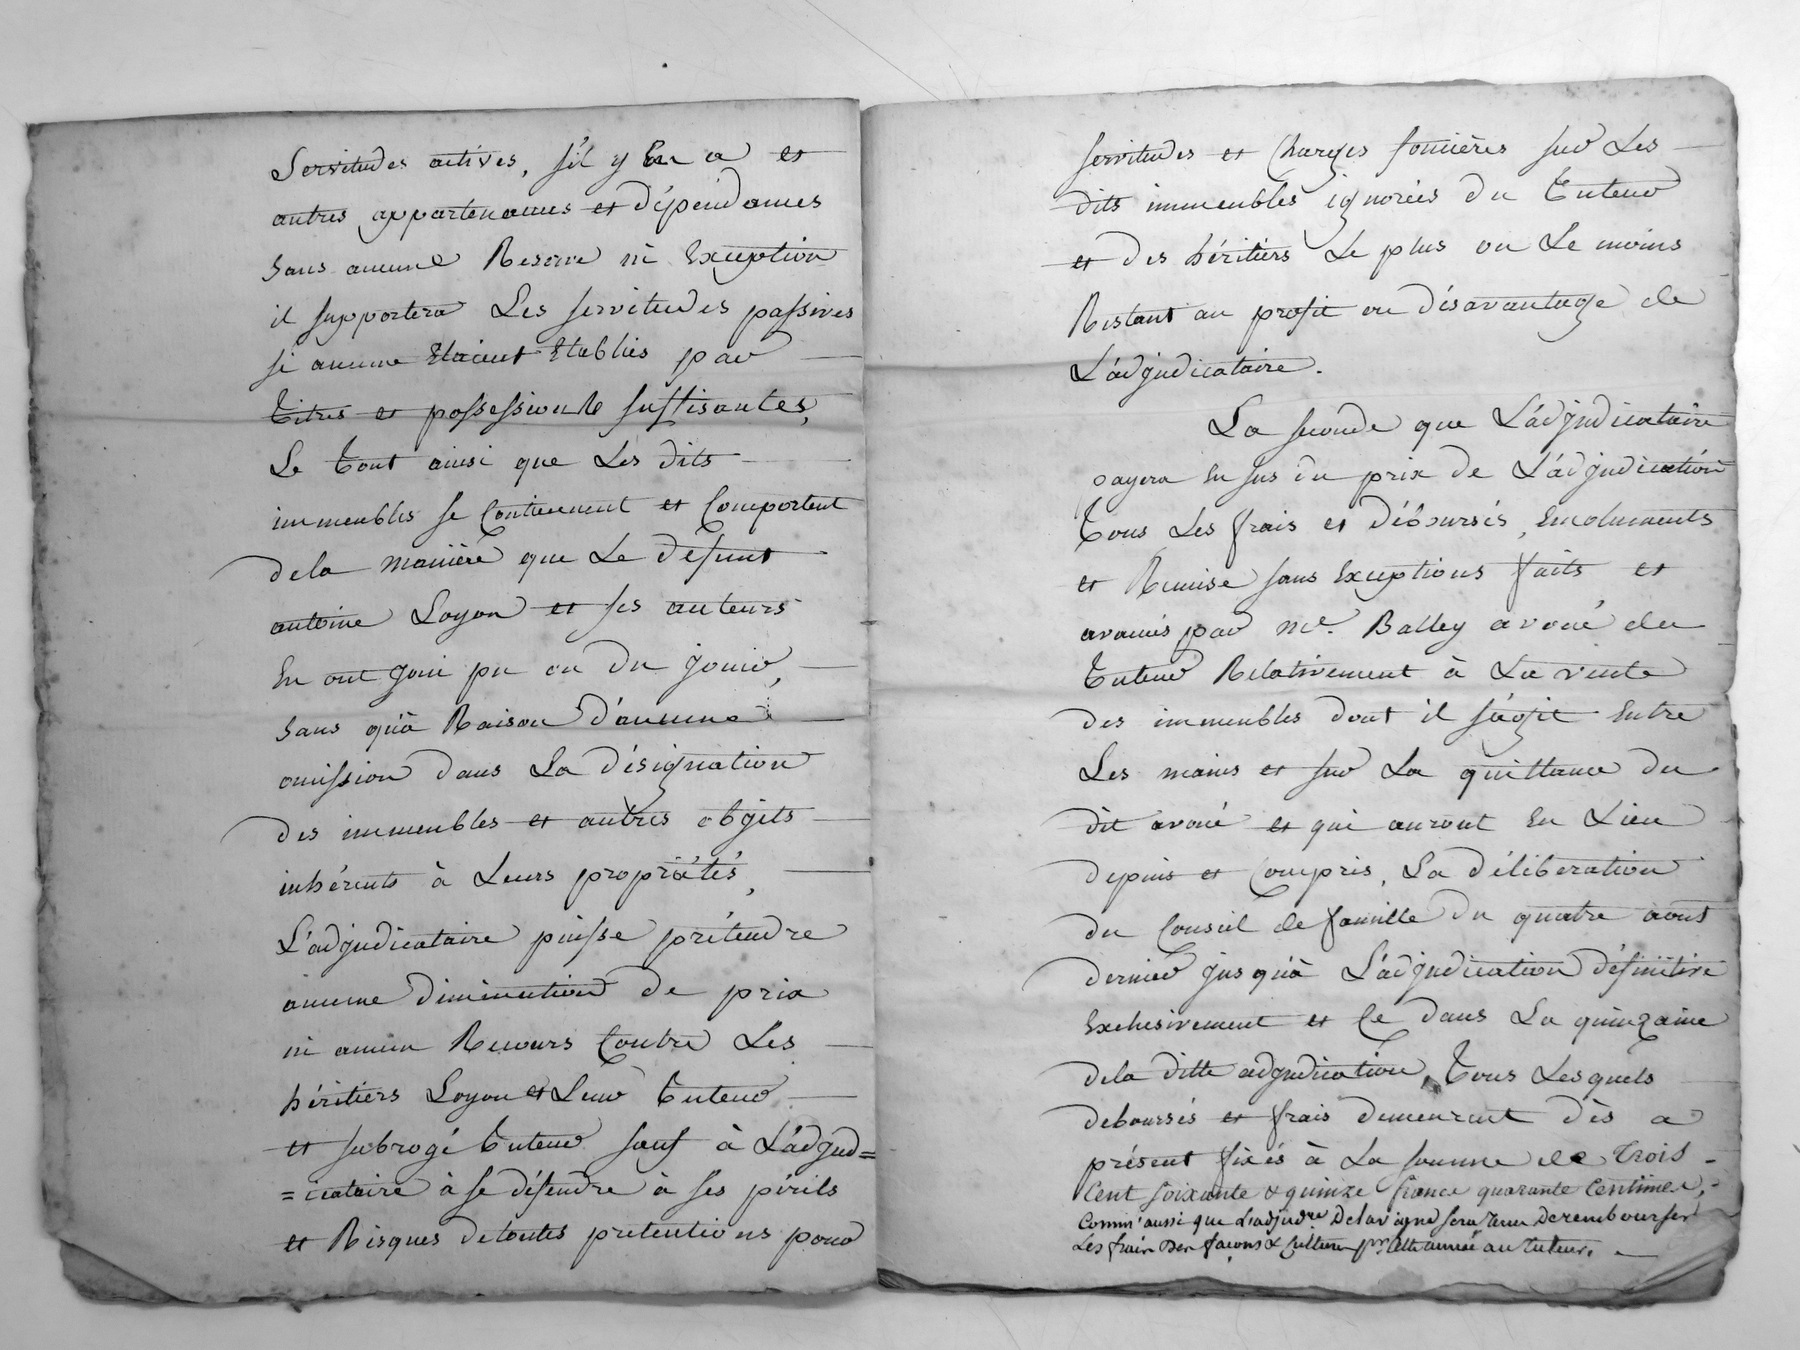 Servitudes actives, s'il y En a et
autres appartenances et dépendances
Sans aucune Reserve ni Exception
il supportera Les servitudes passives
si aucune Etaient Etablies par
Titres et possessions suffisantes,
Le Tout ainsi que Les dits
immeubles se Contiennent et Comportent
dela manière que Le défunt
antoine Loyon et ses auteurs
En ont joui pu ou du jouir,
Sans qu'à Raison d'aucune
omission dans La désignation
des immeubles et autres objets
inhérents à Leurs propriétés,
L'adjudicataire puisse prétendre
aucune diminution de prix
ni aucun Recours Contre Les
héritiers Loyon et Leur Tuteur
et subrogé Tuteur sauf à L'adjud=
=icataire à se défendre à ses périls
et Risques detoutes pretentions pour
servitudes et Charges foncières sur Les
dits immeubles ignorées du Tuteur
et des héritiers Le plus ou Le moins
Restant au profit ou désavantage de
L'adjudicataire.
La seconde que L'adjudicataire
payera En sus du prix de L'adjudication
Tous Les frais et déboursés, Emoluments
et Remise sans Exceptions faits et
avancés par Me. Balley avoué du
Tuteur Relativement à La vente
des immeubles dont il s'agit Entre
Les mains et sur La quittance du
dit avoué et qui auront En Lieu
depuis et Compris, La déliberation
du Conseil de famille du quatre aout
dernier jusqu'à L'adjudication définitive
Exclusivement et Ce dans La quinzaine
dela ditte adjudication, Tous Lesquels
deboursés et frais demeurent dès a
présent fixés à La somme de Trois
Cent soixante & quinze francs quarante Centimes,
Comm'aussi que L'adjudre De la vigne sera Tenu De rembourser
Les frais Des façons & Cultures pr. Cette année au Tuteur.